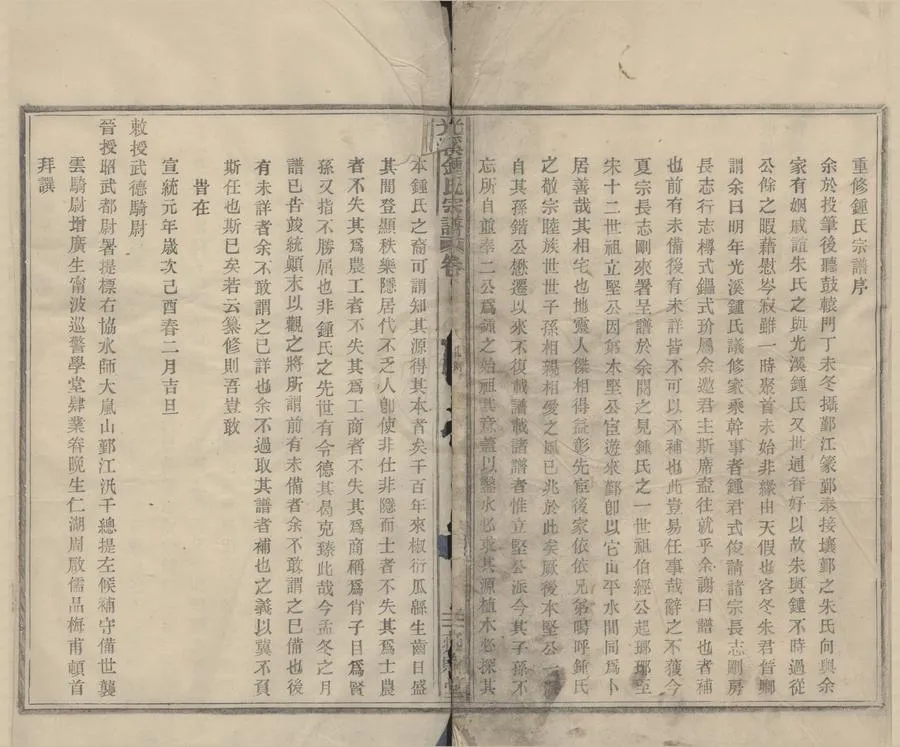 重修鍾氏宗譜序
余於投筆後聽鼓轅門丁未冬攝鄞江篆鄞奉接壤鄞之朱氏向與余
家有姻戚誼朱氏之與光溪鍾氏又世通眷好以故朱與鍾不時過從
公餘之暇藉慰岑寂雖一時聚首未始非緣由天假也客冬朱君
謂余曰明年光溪鍾氏議修家乘幹事者鍾君式俊請諸宗長志剛房
長志行志樽式鑷式玠屬余邀君主斯席盍往就乎余謝曰譜也者補
也前有未備後有未詳皆不可以不補也此豈易任事哉辭之不獲今
夏宗長志剛來署呈譜於余閱之見鍾氏之一世祖伯經公起瑯琊至
宋十二世祖立堅公因弟木堅公宦遊來鄞卽以它山平水間同爲卜
居善哉其相宅也地靈人傑相得益彰先宦後家依依兄弟嗚呼鍾氏
之敬宗睦族世世子孫相親相愛之風已兆於此矣厥後本堅公一派
自其孫鍇公懋遷以來不復載譜載諸譜者惟立堅公派今其子孫不
忘所自重奉二公爲鍾之始祖其意蓋以鑿水必求其源植木必探其
光溪鍾氏宗譜 卷
本鍾氏之裔可謂知其源得其本者矣千百年來椒衍瓜緜生齒日盛
其間登顯秩樂隱居代不乏人卽使非仕非隱而士者不失其爲士農
者不失其爲農工者不失其爲工商者不失其爲商稱爲肖子目爲賢
孫又指不勝屈也非鍾氏之先世有令德其曷克臻此哉今孟冬之月
譜已告竣統顛末以觀之將所謂前有未備者余不敢謂之已備也後
有未詳者余不敢謂之已詳也余不過取其譜者補也之義以冀不負
斯任也斯已矣若云纂修則吾豈敢
旹在
宣統元年歲次己酉春二月吉旦
敕授武德騎尉
晉授昭武都尉署提標右協水師大嵐山鄞江汛千總提左候補守備世襲
雲騎尉增廣生甯波巡警學堂肄業眷晚生仁湖周啟儒品梅甫頓首
拜譔